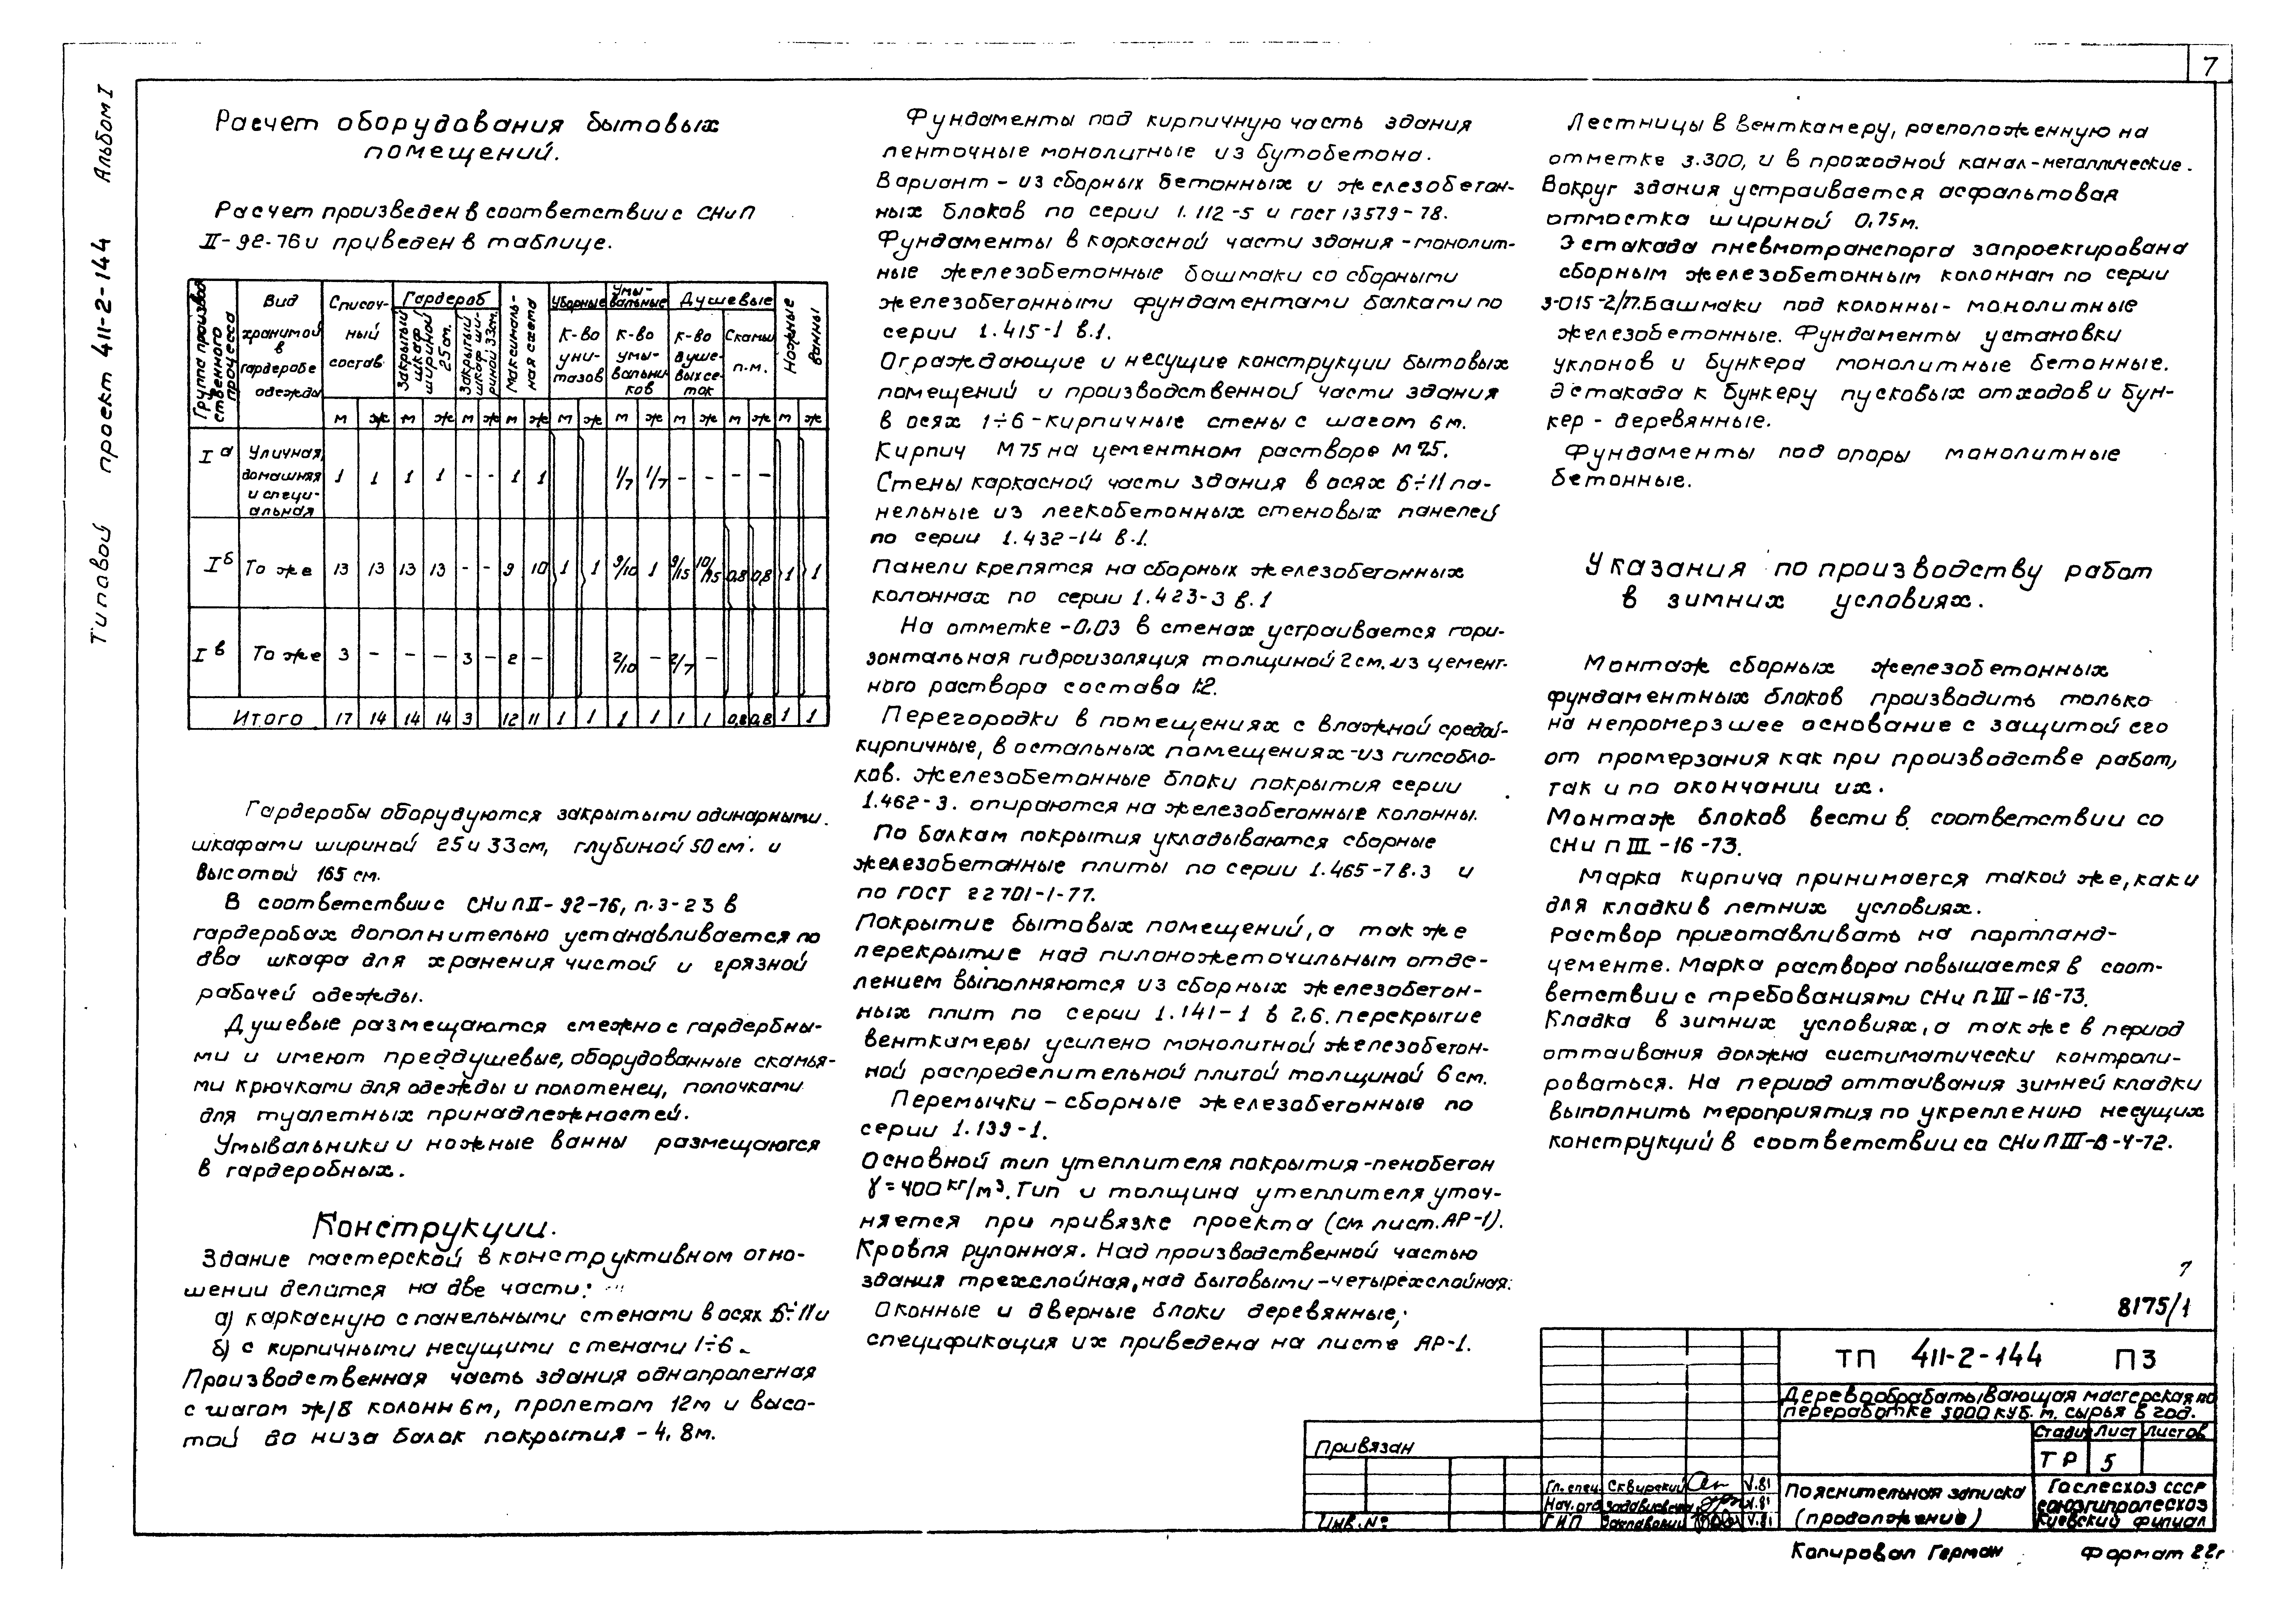 7
Типовой проект 411-2-144 Альбом I
Расчет оборудования бытовых
помещений.
Расчет произведен в соответствии с СНиП
II-92-76 и приведен в таблице.
Группа производственного процесса
Вид хранимой в гардеробе одежды
Списочный состав
Гардероб
Закрытый шкаф шириной 25 см.
Закрытый шкаф шириной 33 см.
Максимальная смена
Уборные
К-во унитазов
Умывальные
К-во умывальников
Душевые
К-во душевых сеток
Скамьи п.м.
Ножные ванны
м ж м ж м ж м ж м ж м ж м ж м ж м ж
Iа Уличная, домашняя и специальная 1 1 1 1 - - 1 1 1/7 1/7 - - - -
Iб То же 13 13 13 13 - - 9 10 1 1 9/10 1 9/15 10/15 0,8 0,8 1 1
Iв То же 3 - - - 3 - 2 - 2/10 - 2/7 -
Итого 17 14 14 14 3 12 11 1 1 1 1 1 1 0,8 0,8 1 1
Гардеробы оборудуются закрытыми одинарными
шкафами шириной 25 и 33 см, глубиной 50 см. и
высотой 165 см.
В соответствии с СНиП II-92-76, п.3-23 в
гардеробах дополнительно устанавливается по
два шкафа для хранения чистой и грязной
рабочей одежды.
Душевые размещаются смежно с гардербны-
ми и имеют преддушевые, оборудованные скамья-
ми крючками для одежды и полотенец, полочками
для туалетных принадлежностей.
Умывальники и ножные ванны размещаются
в гардеробных.
Конструкции.
Здание мастерской в конструктивном отно-
шении делится на две части:
а) каркасную с панельными стенами в осях 6÷11 и
б) с кирпичными несущими стенами 1÷6.
Производственная часть здания однопролетная
с шагом ж/б колонн 6м, пролетом 12м и высо-
той до низа балок покрытия - 4,8м.
Фундаменты под кирпичную часть здания
ленточные монолитные из бутобетона.
Вариант - из сборных бетонных и железобетон-
ных блоков по серии 1.112-5 и гост 13579-78.
Фундаменты в каркасной части здания - монолит-
ные железобетонные башмаки со сборными
железобетонными фундаментами балками по
серии 1.415-1 в.1.
Ограждающие и несущие конструкции бытовых
помещений и производственной части здания
в осях 1÷6 - кирпичные стены с шагом 6м.
Кирпич М75 на цементном растворе М25.
Стены каркасной части здания в осях 6÷11 па-
нельные из легкобетонных стеновых панелей
по серии 1.432-14 в.1.
Панели крепятся на сборных железобетонных
колоннах по серии 1.423-3 в.1
На отметке -0.03 в стенах устраивается гори-
зонтальная гидроизоляция толщиной 2 см. из цемент-
ного раствора состава 1:2.
Перегородки в помещениях с влажной средой-
кирпичные, в остальных помещениях-из гипсобло-
ков. Железобетонные блоки покрытия серии
1.462-3. опираются на железобетонные колонны.
По балкам покрытия укладываются сборные
железобетонные плиты по серии 1.465-7 в.3 и
по ГОСТ 22701-1-77.
Покрытие бытовых помещений, а так же
перекрытие над пилоножеточильным отде-
лением выполняются из сборных железобетон-
ных плит по серии 1.141-1 в 2.6. перекрытие
венткамеры усилено монолитной железобетон-
ной распределительной плитой толщиной 6 см.
Перемычки - сборные железобетонные по
серии 1.139-1.
Основной тип утеплителя покрытия-пенобетон
γ=400 кг/м³. Тип и толщина утеплителя уточ-
няется при привязке проекта (см. лист. АР-1).
Кровля рулонная. Над производственной частью
здания трехслойная, над бытовыми - четырехслойная.
Оконные и дверные блоки деревянные;
спецификация их приведена на листе АР-1.
Лестницы в венткамеру, расположенную на
отметке 3.300, и в проходной канал - металлические.
Вокруг здания устраивается асфальтовая
отмостка шириной 0,75м.
Эстакада пневмотранспорта запроектирована
сборным железобетонным колоннам по серии
3-015-2/77. Башмаки под колонны - монолитные
железобетонные. Фундаменты установки
уклонов и бункера монолитные бетонные.
Эстакада к бункеру пусковых отходов и бун-
кер - деревянные.
Фундаменты под опоры монолитные
бетонные.
Указания по производству работ
в зимних условиях.
Монтаж сборных железобетонных
фундаментных блоков производить только
на непромерзшее основание с защитой его
от промерзания как при производстве работ,
так и по окончании их.
Монтаж блоков вести в соответствии со
СНиП III-16-73.
Марка кирпича принимается такой же, как и
для кладки в летних условиях.
Раствор приготавливать на портланд-
цементе. Марка раствора повышается в соот-
ветствии с требованиями СНиП III-16-73.
Кладка в зимних условиях, а также в период
оттаивания должна систиматически контроли-
роваться. На период оттаивания зимней кладки
выполнить мероприятия по укреплению несущих
конструкций в соответствии со СНиП III-В-4-72.
7
8175/1
ТП 411-2-144 ПЗ
Деревообрабатывающая мастерская по
переработке 5000 куб. м. сырья в год.
Стади Лист Листов
ТР 5
Привязан
Инв. №
Гл. спец. Сквирский V.81
Нач. отд V.81
ГИП V.81
Пояснительная записка
(продолжение)
Гослесхоз СССР
Союзгипролесхоз
Киевский филиал
Копировал Герман Формат 22г